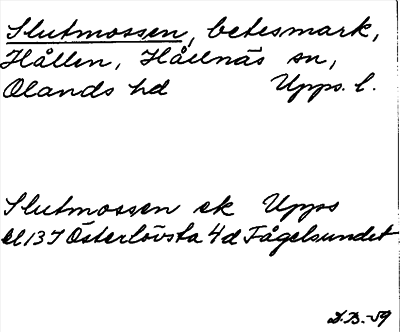 Slutmossen, betesmark,
Hållen, Hållnäs sn,
Olands hd Upps. l.
Slutmossen ek Upps
bl 137 Österlövsta 4d Fågelsundet
D.B.-59